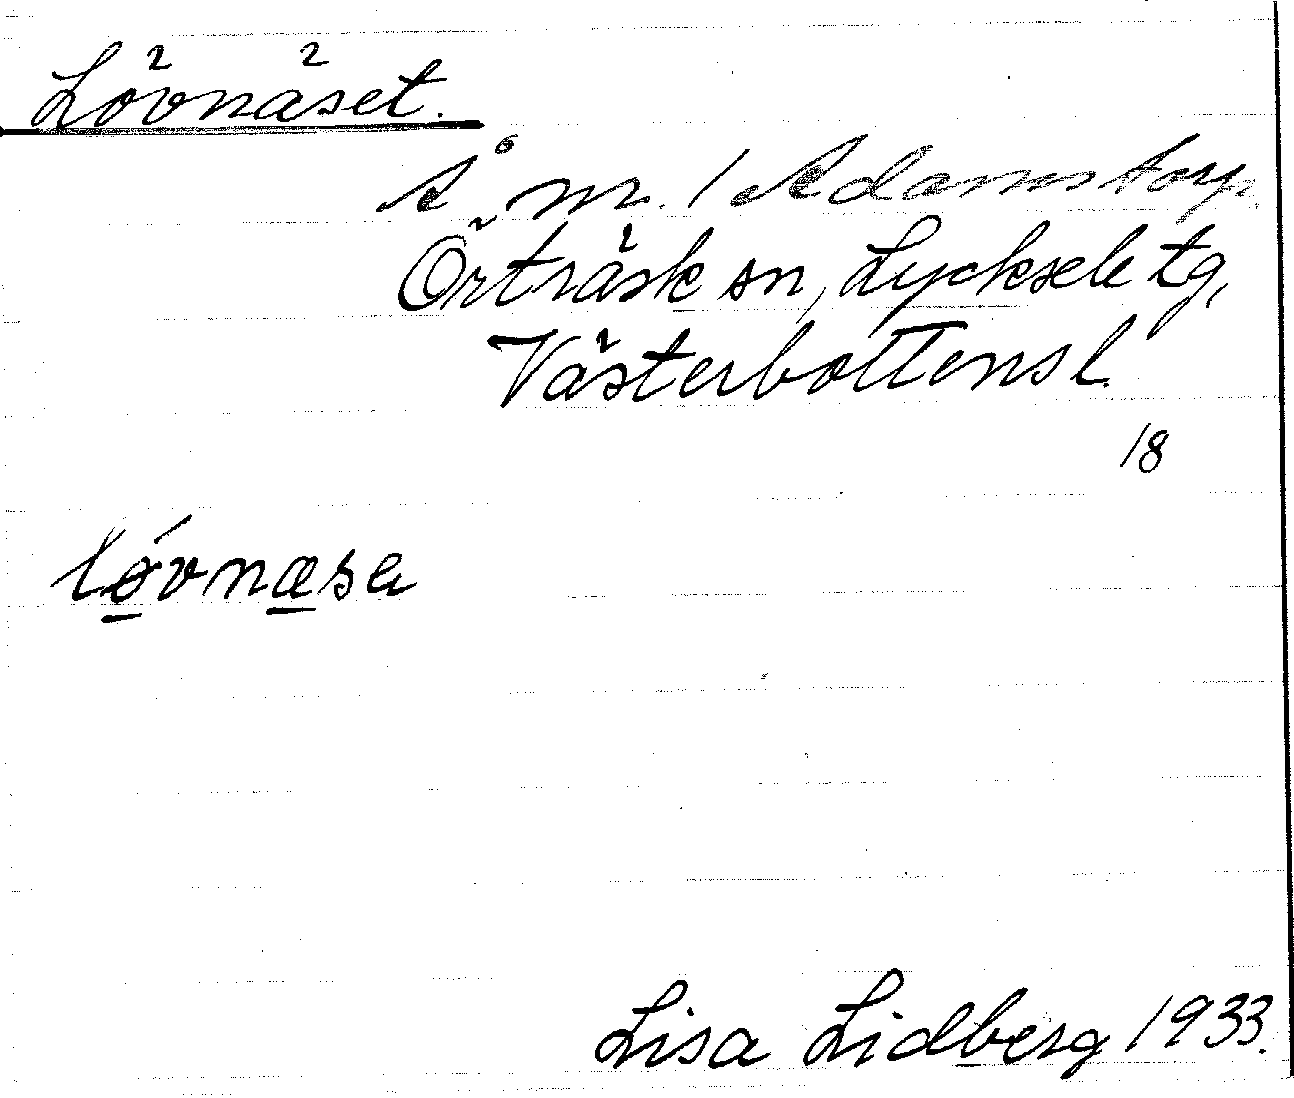 Lövnäset.
Å nr. 1 Adamstorp.
Örträsk sn, Lycksele tg,
Västerbottens l.
18
løvnæsa
Lisa Lidberg 1933.